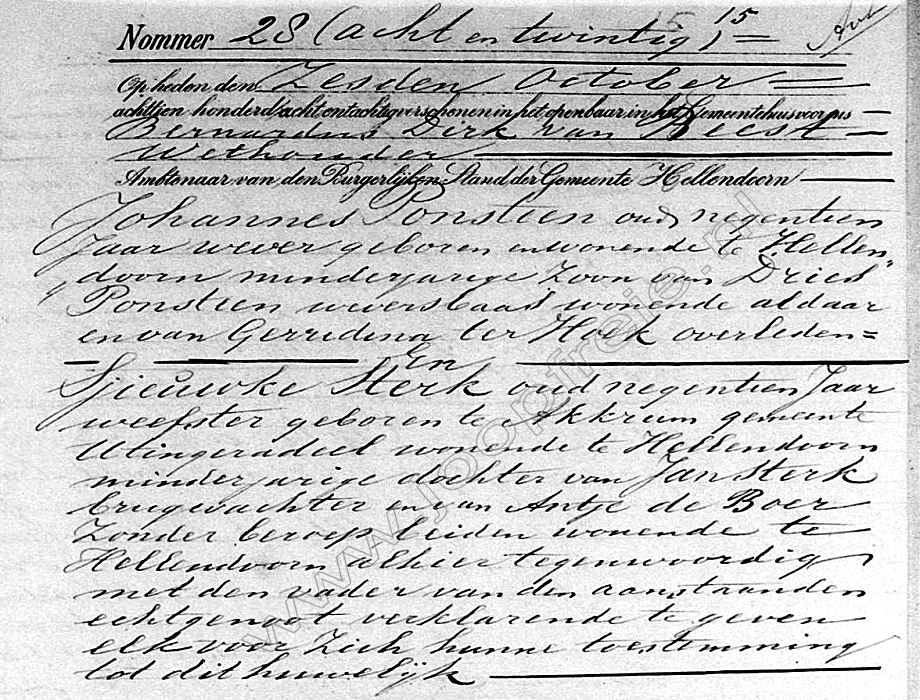 Nommer 28 (acht en twintig) 15
Op heden den Zesden October
achttien honderd acht en tachtig verschenen in het openbaar in het Gemeentehuis voor ons
Bernardus Dirk van Heest
Wethouder
Ambtenaar van den Burgerlijken Stand der Gemeente Hellendoorn
Johannes Ponsteen oud negentien
Jaar wever geboren en wonende te "Hellen"
"doorn minderjarige Zoon van Dries
Ponsteen weversbaas wonende aldaar
en van Gerredina ter Hoek overleden=
En
Sjieuwke Sterk oud negentien Jaar
weefster geboren te Akkrum gemeente
Utingeradeel wonende te Hellendoorn
minderjarige dochter van Jan Sterk
brugwachter en van Antje de Boer
Zonder beroep beiden wonende te
Hellendoorn alhier tegenwoordig
met den vader van den aanstaanden
echtgenoot verklarende te geven
elk voor Zich hunne toestemming
tot dit huwelijk
www.joopfreie.nl